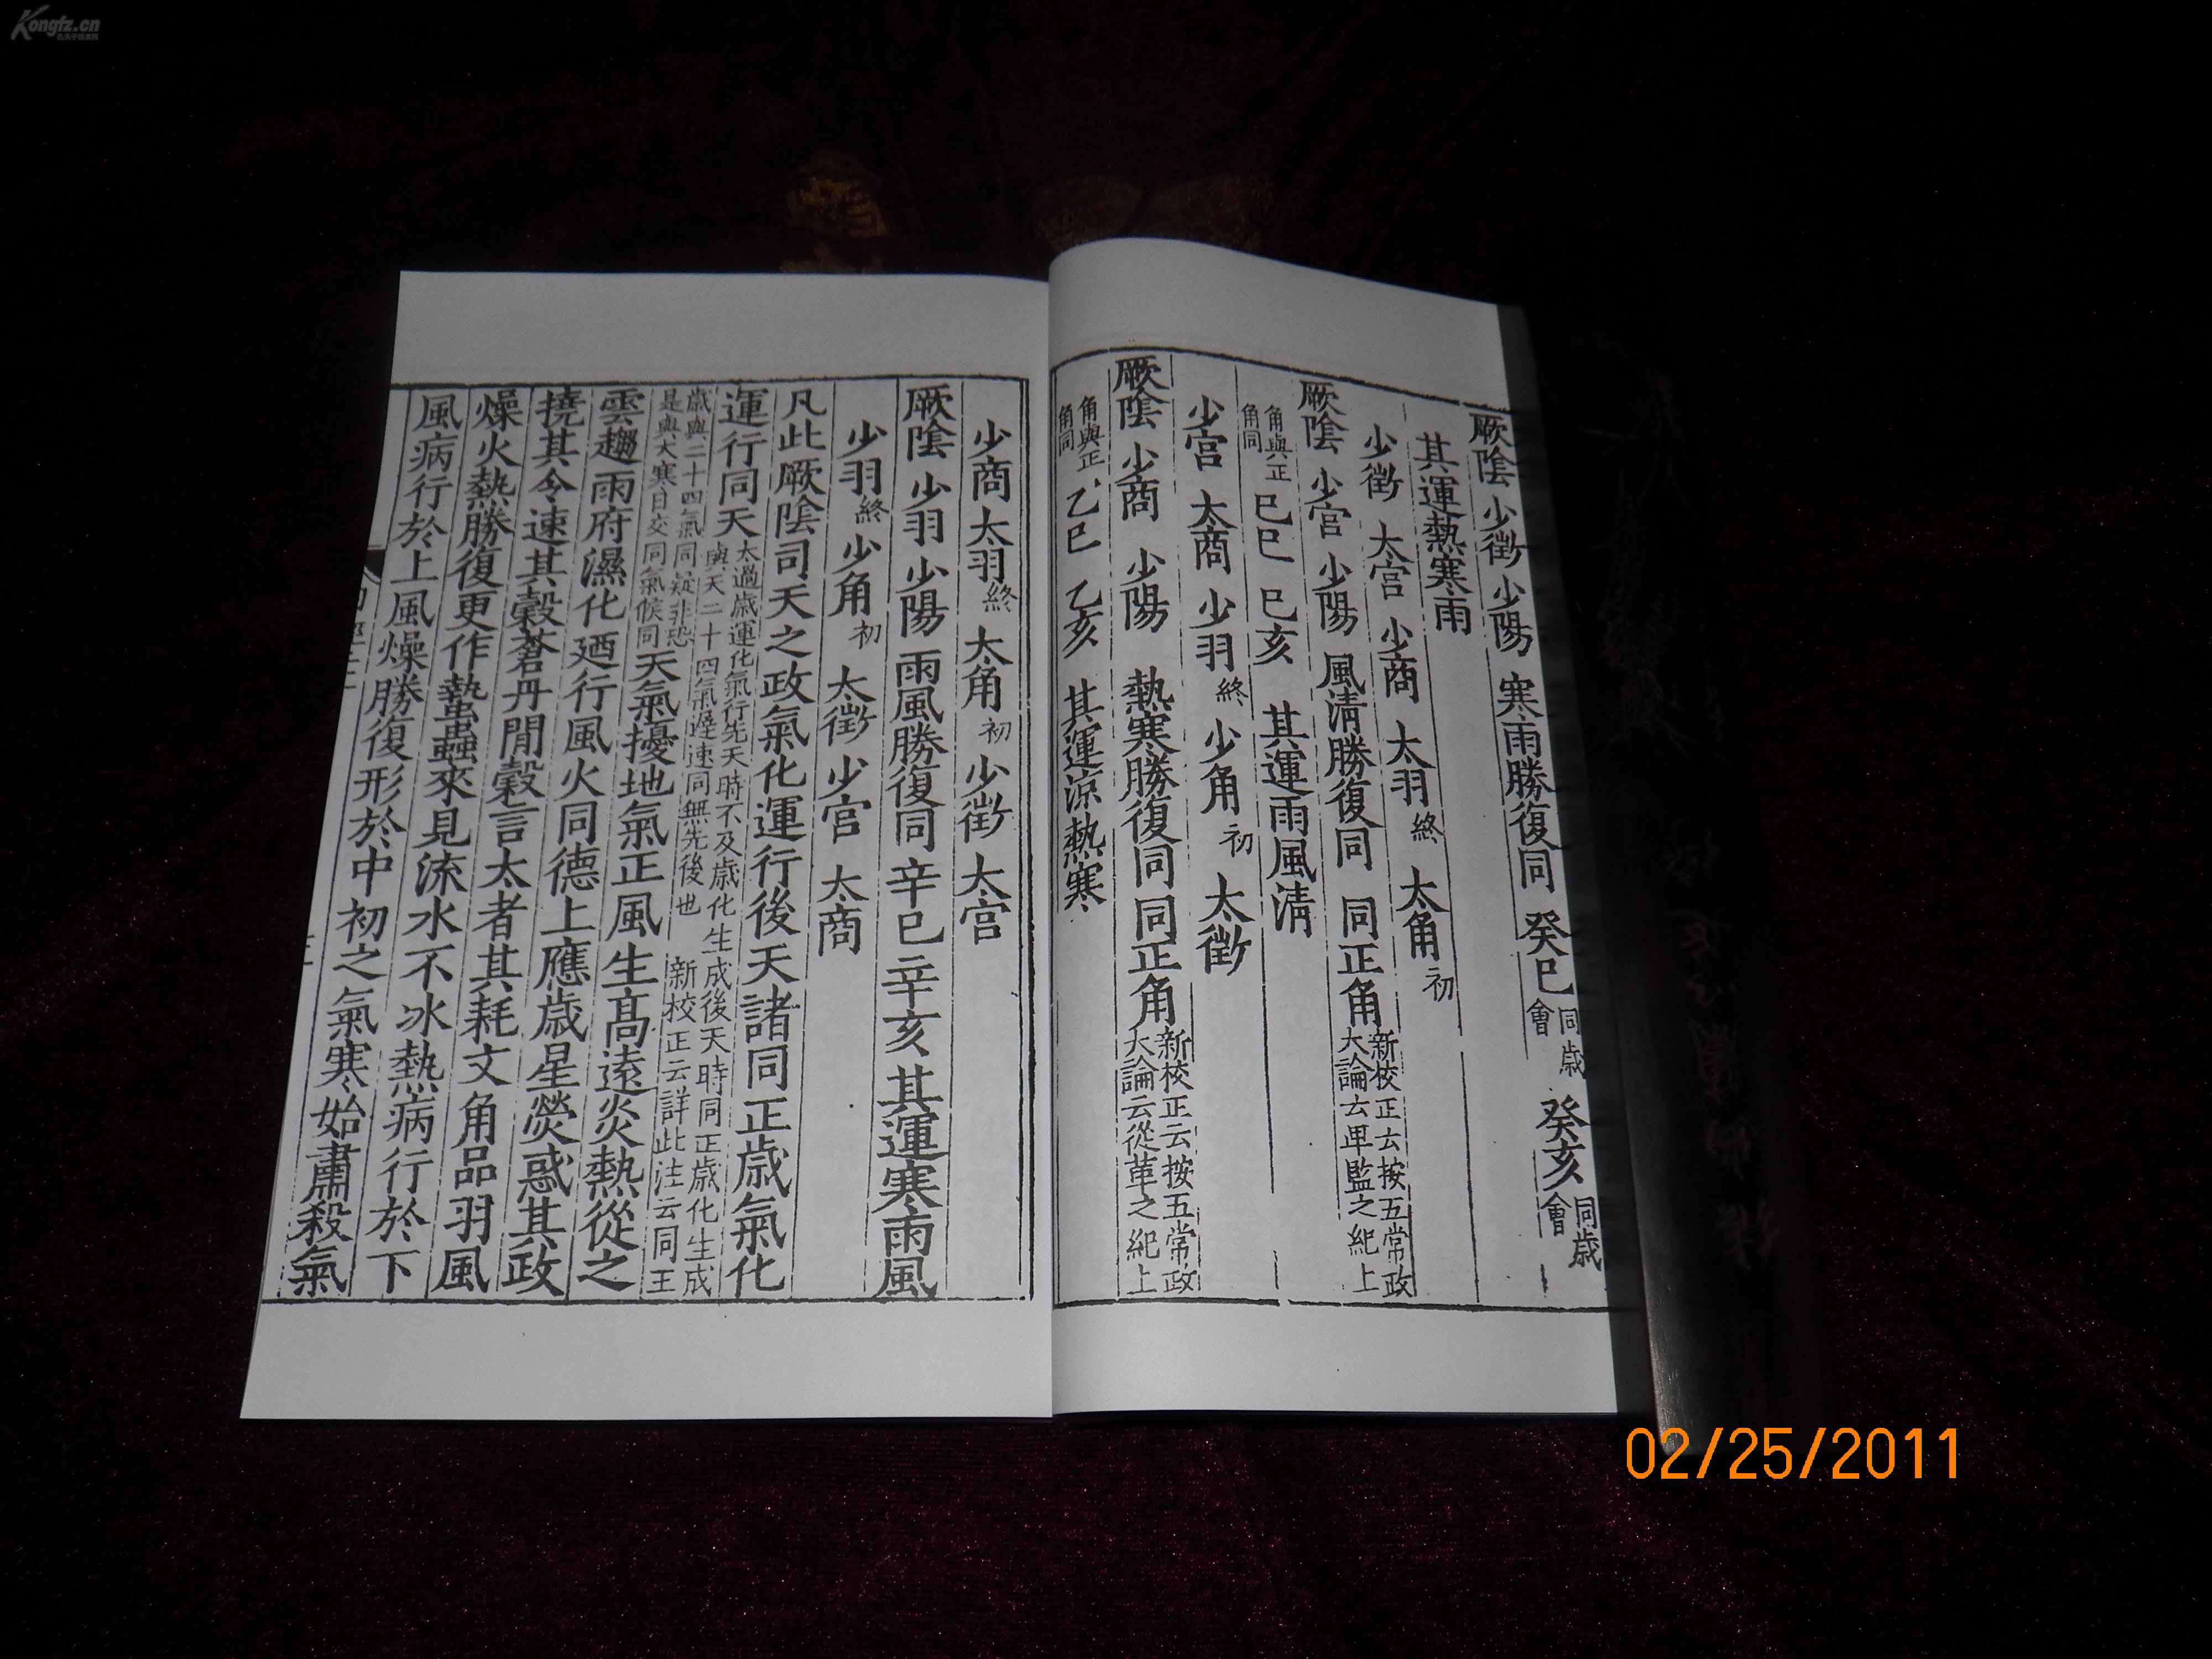 Kongfz.cn
厥陰 少徵 少陽 寒雨勝復同 癸巳 同歲會 癸亥 同歲會
其運熱寒雨
少徵 太宮 少商 太羽 終 太角 初
厥陰 少宮 少陽 風清勝復同 同正角 新校正云按五常政大論云卑監之紀上
角與正角同 己巳 己亥 其運雨風清
少宮 太商 少羽 終 少角 初 太徵
厥陰 少商 少陽 熱寒勝復同 同正角 新校正云按五常政大論云從革之紀上
角與正角同 乙巳 乙亥 其運涼熱寒
少商 太羽 終 太角 初 少徵 太宮
厥陰 少羽 少陽 雨風勝復同 辛巳 辛亥 其運寒雨風
少羽 終 少角 初 太徵 少宮 太商
凡此厥陰司天之政氣化運行後天諸同正歲氣化
運行同天 太過歲運化氣行先天時不及歲化生成後天時同正歲化生成與天二十四氣遲速同無先後也 新校正云詳此注云同正
歲與二十四氣同疑非恐是與大寒日交同氣候同 天氣擾地氣正風生高遠炎熱從之
雲趨雨府濕化廼行風火同德上應歲星熒惑其政
撓其令速其穀蒼丹間穀言太者其耗文角品羽風
燥火熱勝復更作蟄蟲來見流水不冰熱病行於下
風病行於上風燥勝復形於中初之氣寒始肅殺氣
02/25/2011